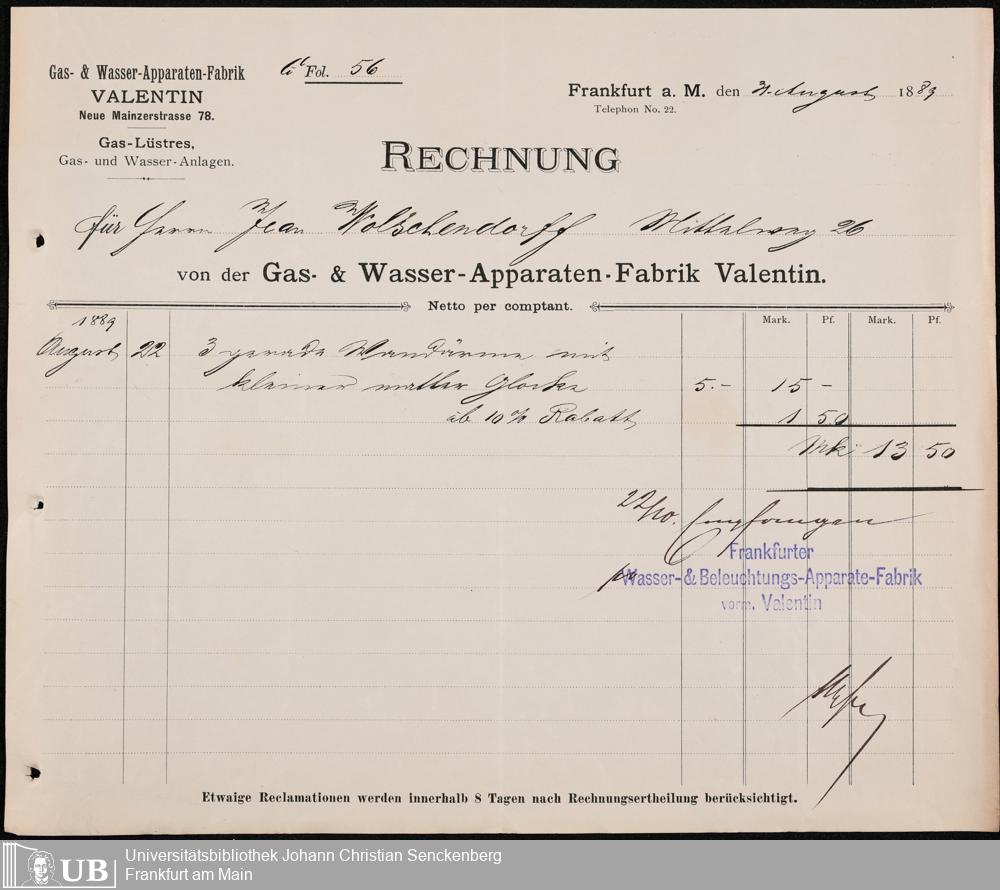 Gas- & Wasser-Apparaten-Fabrik
VALENTIN
Neue Mainzerstrasse 78.
Gas-Lüstres,
Gas- und Wasser-Anlagen.
Fol. 56
Frankfurt a. M. den 31. August 1889
Telephon No. 22.
RECHNUNG
für Herrn Jean Wolschendorff Mittelweg 26
von der Gas- & Wasser-Apparaten-Fabrik Valentin.
Netto per comptant.
Mark. Pf. Mark. Pf.
1889
August 22 3 gerade Wandärme mit
kleiner matter Glocke 5.- 15 -
ab 10% Rabatt 1 50
Mk 13 50
22/10. Empfangen
Frankfurter
Wasser- & Beleuchtungs-Apparate-Fabrik
vorm. Valentin
Etwaige Reclamationen werden innerhalb 8 Tagen nach Rechnungsertheilung berücksichtigt.
UB
Universitätsbibliothek Johann Christian Senckenberg
Frankfurt am Main